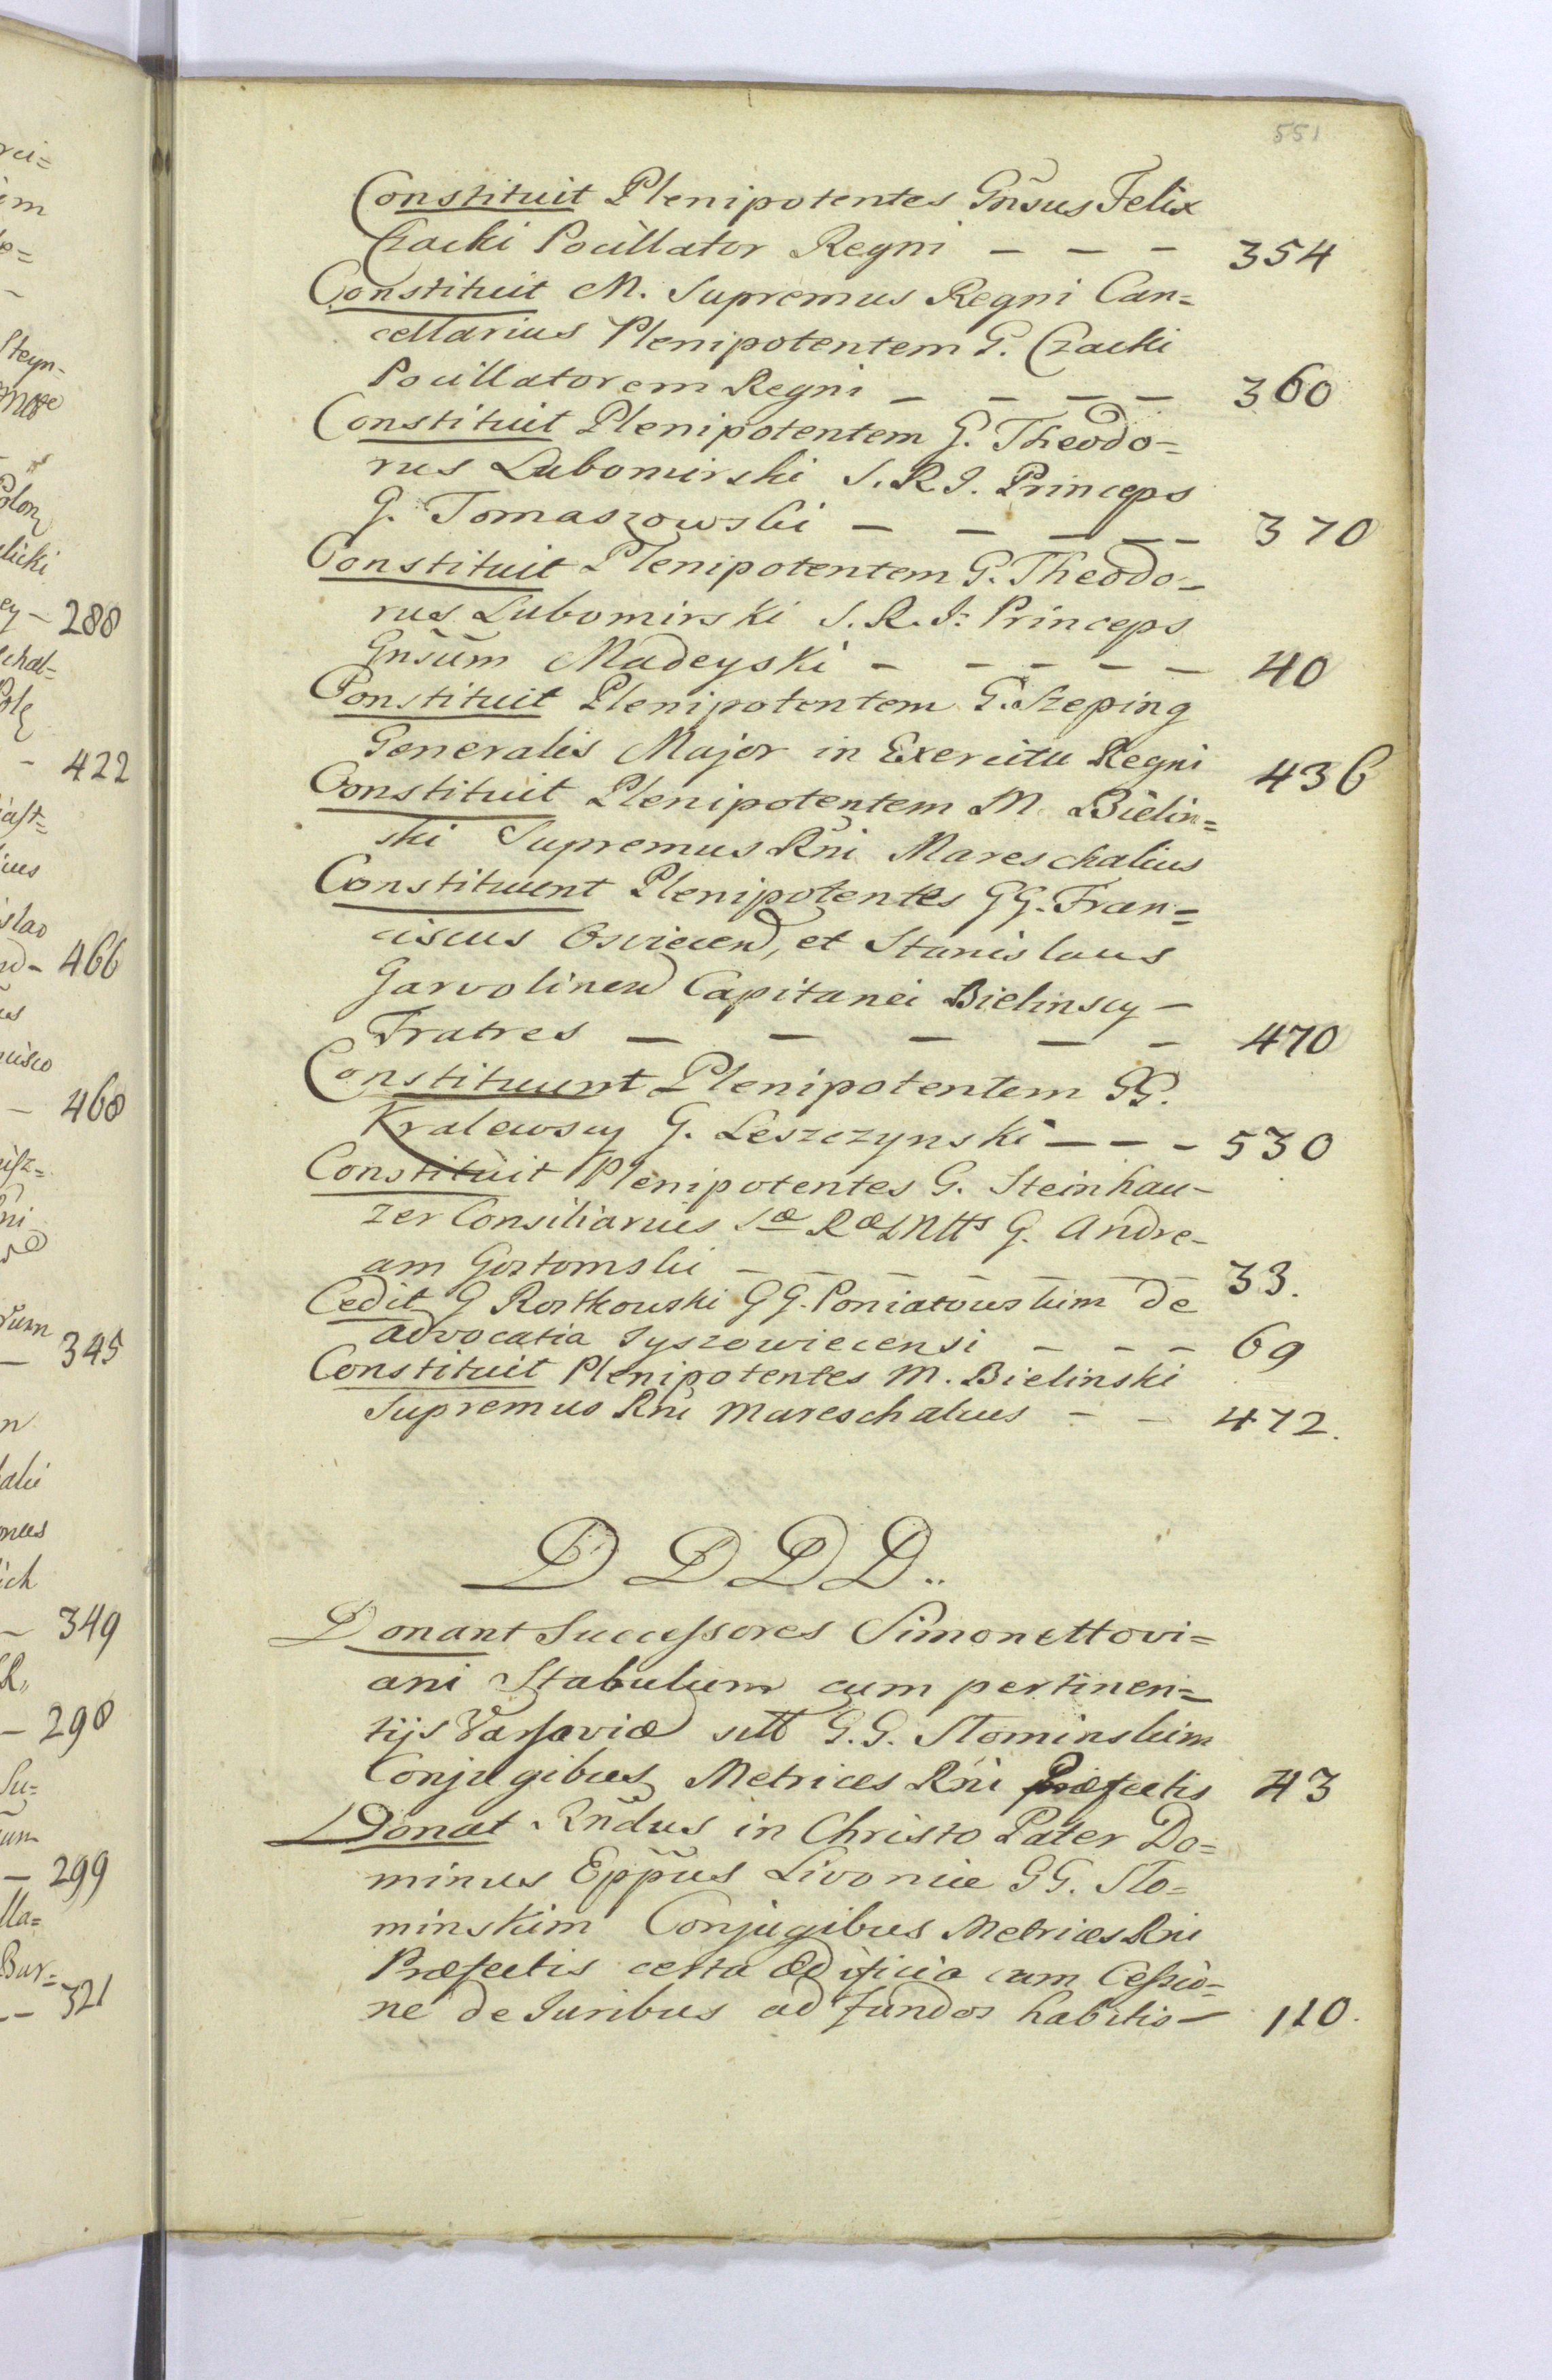 551
Constituit Plenipotentes Gnsus Felix
Czacki Pocillator Regni — — — 354
Constituit M. Supremus Regni Can=
cellarius Plenipotentem G. Czacki
Pocillatorem Regni — — — — 360
Constituit Plenipotentem G. Theodo=
rus Lubomirski S. R. I. Princeps
G. Tomaszowski — — — — — 370
Constituit Plenipotentem G. Theodo-
rus Lubomirski S. R. I: Princeps
Gnsum Madeyski — — — — — 40
Constituit Plenipotentem G. Szeping
Generalis Major in Exercitu Regni 436
Constituit Plenipotentem M. Bielin=
ski Supremus Rni Mareschalius
Constituunt Plenipotentes GG. Fran=
ciscus et Stanislaus
Capitanei Bielinscy —
Fratres — — — — — 470
Constituunt Plenipotentem GG.
Kralewscy G. Leszczynski — — — 530
Constituit Plenipotentes G. Steinhau-
zer Consiliarius Sæ Ræ Mttis G. Andre-
am Gostomski — — — — — — — 33.
Cedit G Rostkowski GG. Poniatowskim de
advocatia Tyszowiecensi — — — 69
Constituit Plenipotentes M. Bielinski
Supremus Rni Mareschalus — — 472.
D D D D..
Donant Successores Simonettovi=
ani Stabulum cum pertinen=
tijs Varsaviæ G.G. Slominskim
Conjugibus Metrices Rni Præfectis 43
Donat Rndus in Christo Pater Do=
minus Eppus Livoniæ GG. Slo=
minskim Conjugibus Metrices Rni
Præfectis certa Ædificia cum Cessio=
ne de Iuribus ad fundos habitis — 110.
288
422
466
468
345
349
298
299
321